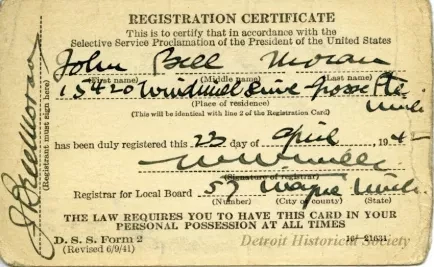 REGISTRATION CERTIFICATE
This is to certify that in accordance with the
Selective Service Proclamation of the President of the United States
John Bell Moran
(First name) (Middle name) (Last name)
15420 Windmill Drive Grosse Pte
Mich
(Place of residence)
(This will be identical with line 2 of the Registration Card)
has been duly registered this 23 day of April, 194
(Signature of registrar)
Registrar for Local Board 57 Wayne Mich.
(Number) (City or county) (State)
THE LAW REQUIRES YOU TO HAVE THIS CARD IN YOUR
PERSONAL POSSESSION AT ALL TIMES
D. S. S. Form 2
(Revised 6/9/41)
Detroit Historical Society
J Bell Moran
(Registrant must sign here)